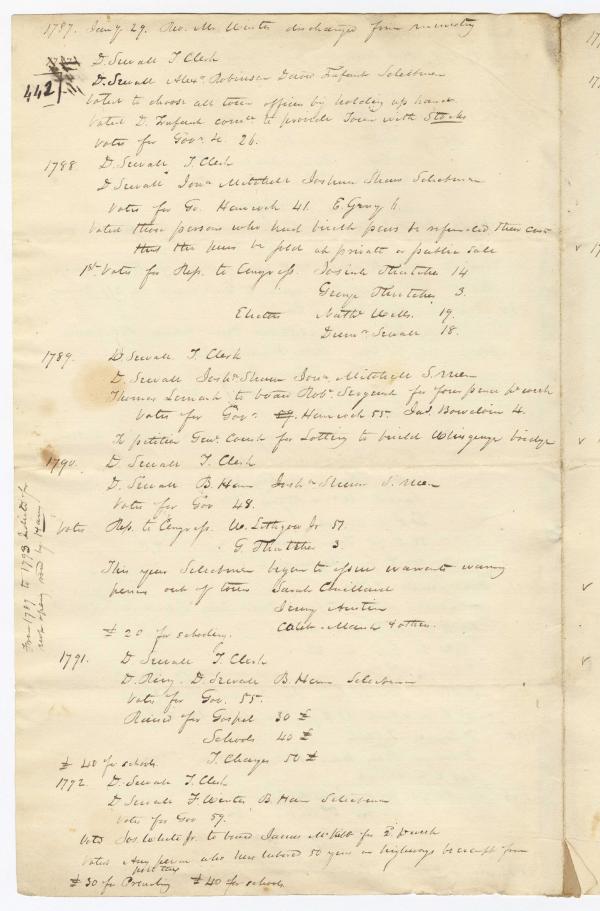 1787. Jany 29. Rev. Mr. Winter discharged from ministry
D. Sewall T. Clerk
442
D. Sewall Alexr Robinson David Trufant Selectmen
Voted to choose all town officers by holding up hands
Voted D. Trufant comtee to provide Town with Stocks
Votes for Govr &c. 26.
1788. D. Sewall T. Clerk
D Sewall Jona Mitchell Joshua Shaw Selectmen
Votes for Go. Hancock 41. E. Gerry 4.
Voted those persons who had built pews be refunded their cost
that the pews be sold at private or public sale
1st. Votes for Rep. to Congress. Josiah Thatcher 14
George Thatcher 3.
Electors Nathl Wells. 19.
Dumr Sewall 18.
1789. D. Sewall T. Clerk
D. Sewall Josha Shaw Jona Mitchell S. Men
Thomas Lemont to board Robt Sergeant for four pence pr week
Votes for Govr Hancock 55. Jas. Bowdoin 4.
To petition Genl Court for Lottery to build Whisgeage bridge
1790. D. Sewall T. Clerk
D. Sewall B. Ham Josha Shaw S. Men
Votes for Gov 48.
Votes Rep. to Congress. W. Lithgow Jr 51.
G Thatcher 3.
This year Selectmen began to issue warrants warning
persons out of town Sarah
Jenny Austin
Caleb Marsh & others.
£ 20 for schooling.
From 1787 to 1793
1791. D. Sewall T. Clerk
D. Sewall B. Ham Selectmen
Votes for Gov. 55.
Raised for Gospel 30 £
Schools 40 £
£ 40 for schools. T. Charges 50 £
1792. D. Sewall T. Clerk
D Sewall F. Winter B. Ham Selectmen
Votes for Gov 59.
Voted Jos White Jr. to board James for pr week
Voted Any person who has labored 50 years on highways be exempt from
poll tax
£ 30 for Preaching £ 40 for schools.